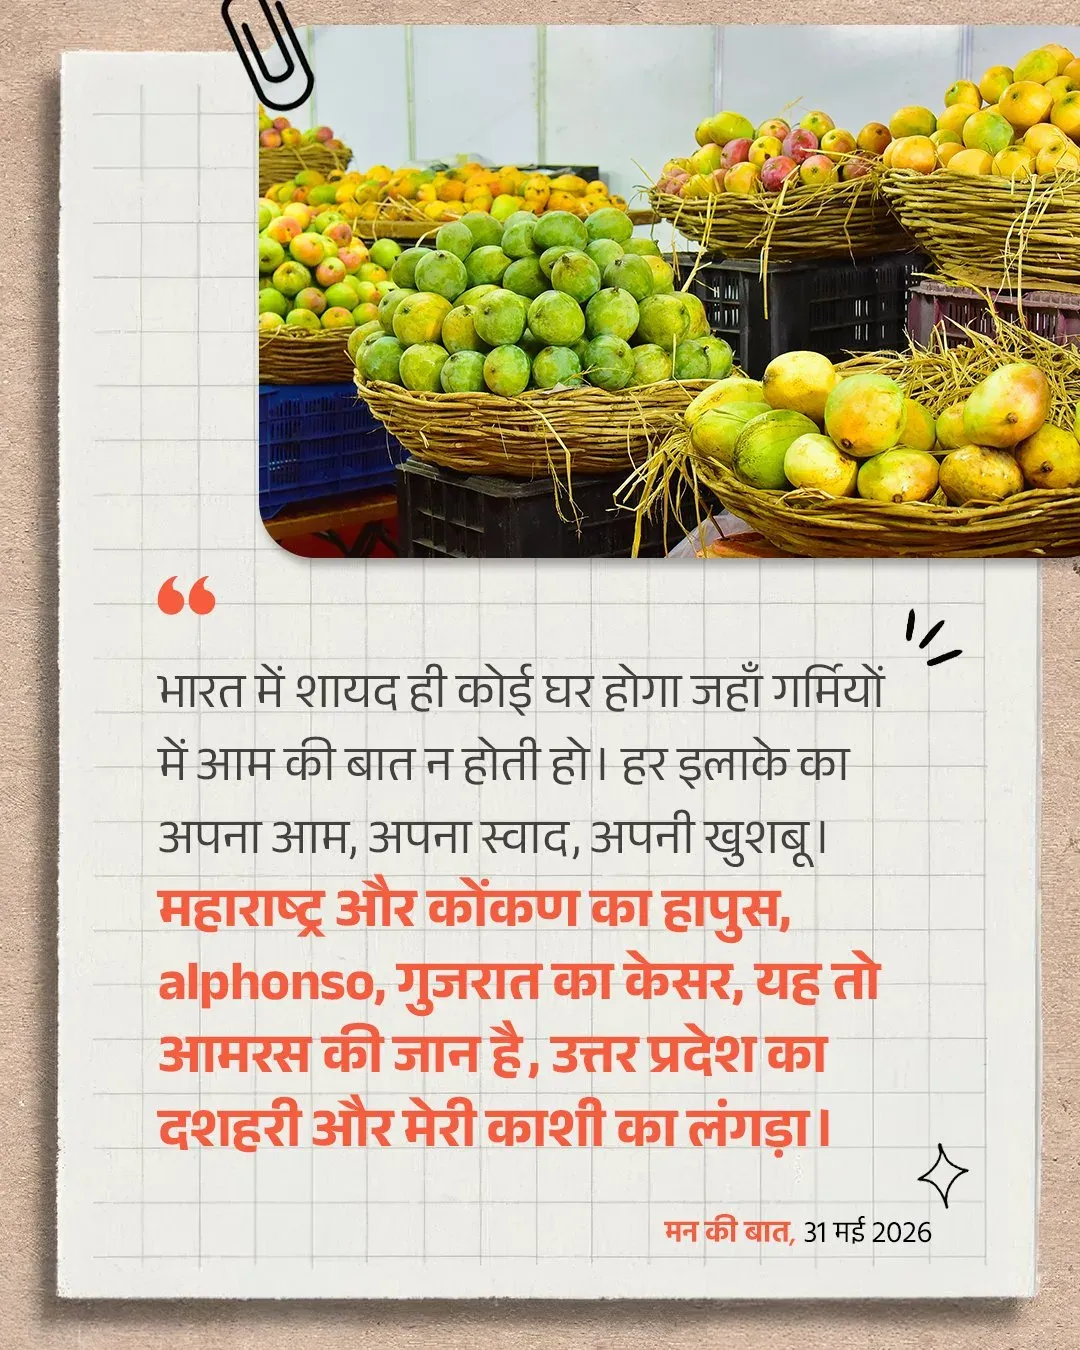 भारत में शायद ही कोई घर होगा जहाँ गर्मियों
में आम की बात न होती हो। हर इलाके का
अपना आम, अपना स्वाद, अपनी खुशबू।
महाराष्ट्र और कोंकण का हापुस,
alphonso, गुजरात का केसर, यह तो
आमरस की जान है, उत्तर प्रदेश का
दशहरी और मेरी काशी का लंगड़ा।
मन की बात, 31 मई 2026